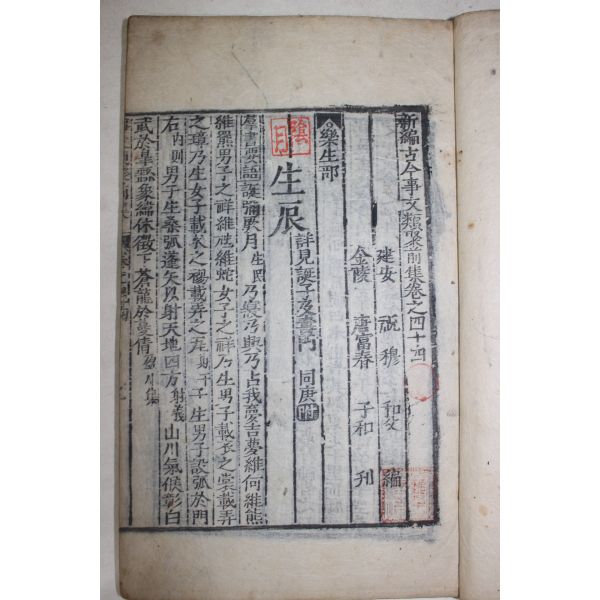 新編古今事文類聚前集卷之四十四
建安 祝穆 和父 編
金陵 唐富春 子和 刊
樂生部
生辰 詳見誕子及壽門 同庚附
羣書要語誕彌厥月生民乃寢乃興乃占我夢吉夢維何維熊
維羆男子之祥維虺維蛇女子之祥乃生男子載衣之裳載弄
之璋乃生女子載衣之裼載弄之瓦斯干子生男子設弧於門
右內則男子生桑弧蓬矢以射天地四方射義山川氣候彰白
武於 衆緯休徵下蒼龍於